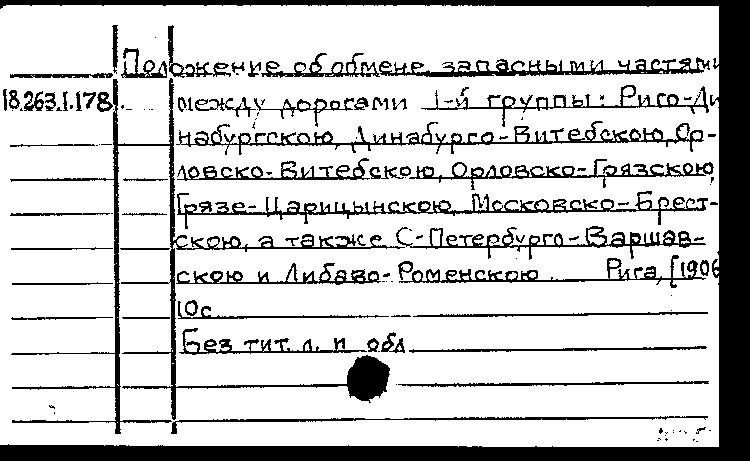 Положение об обмене запасными частями
18.263.I.178. между дорогами I-й группы: Риго-Ди
набургскою, Динабурго-Витебскою, Ор-
ловско-Витебскою, Орловско-Грязскою,
Грязе-Царицынскою, Московско-Брест-
скою, а также С-Петербурго-Варшав-
скою и Либаво-Роменскою. Рига, [1906
10с
Без тит. л. и обл